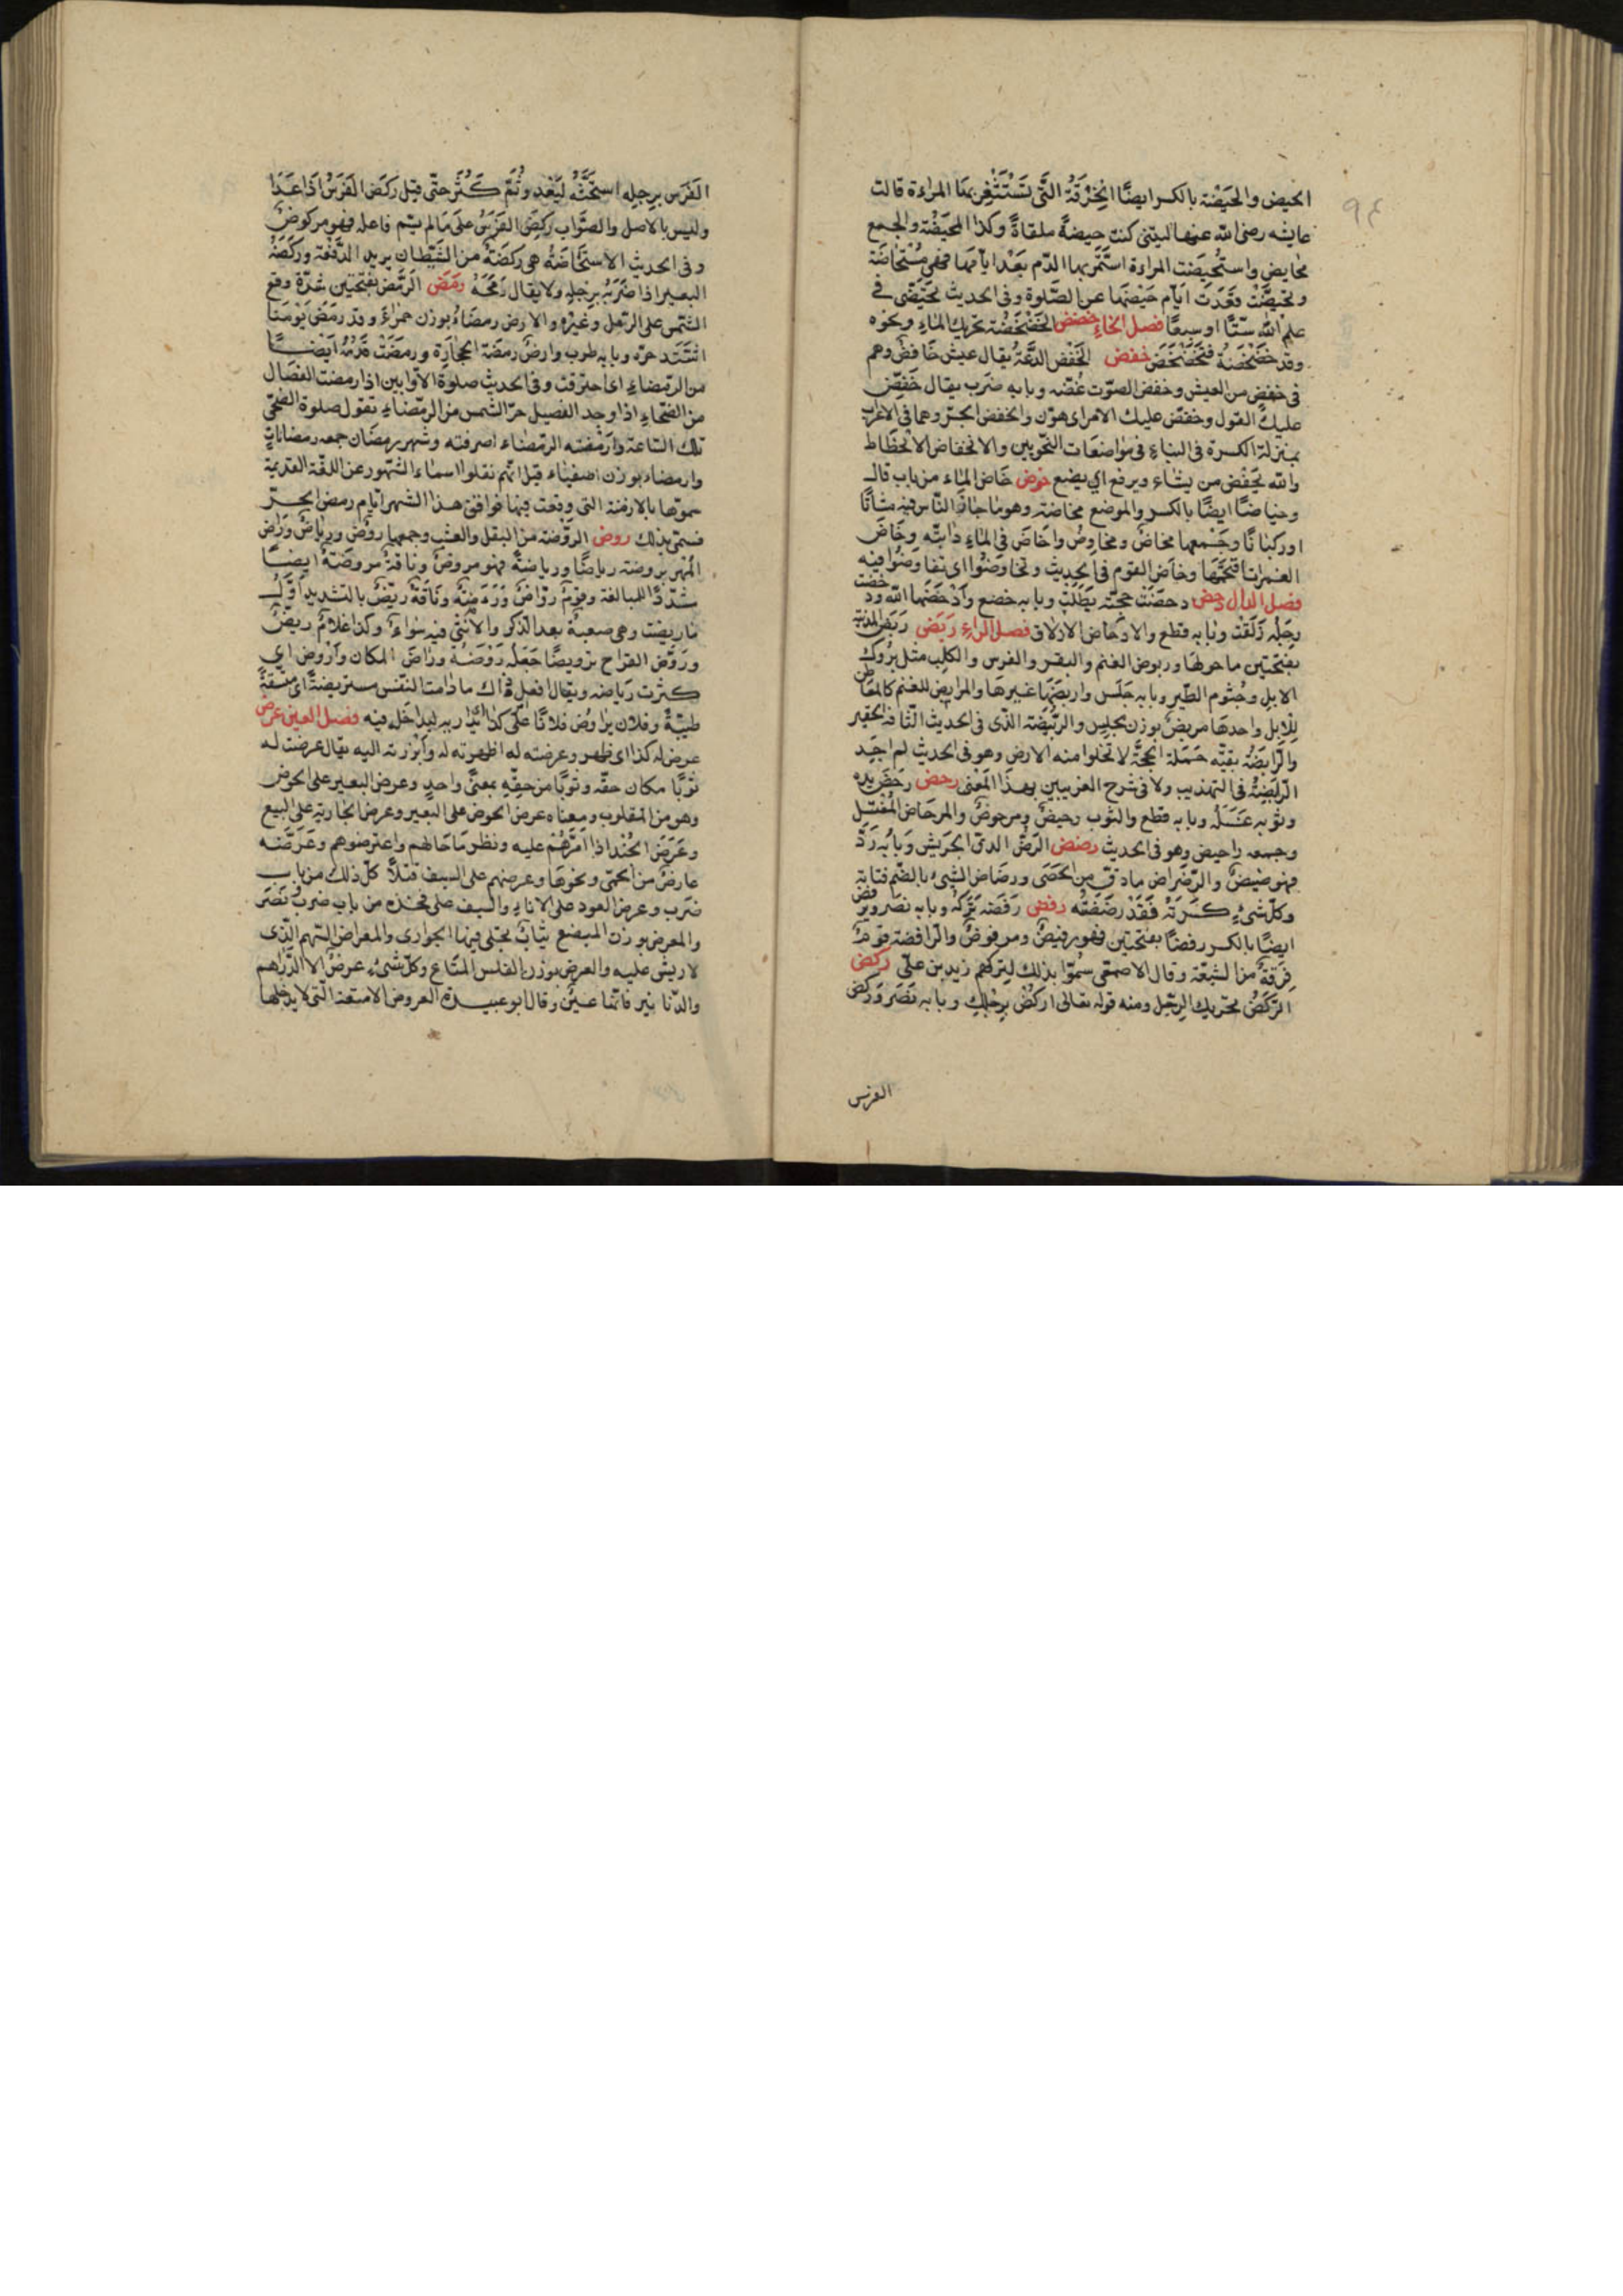 ٩٤
الحيض والحَيْضة بالكسر ايضًا الخِرْقَةُ التّى تَسْتَثْفِن بها المراءة قالت
عايشه رضى الله عنها ليتنى كنت حيضةً ملقاةً وكذا المحيَضْة والجمع
محايض واستُحيضَت المراءة استَمَرّ بها الدّم بَعْدَ ايّامها فهى مُسْتحاضَة
وتحيّضَتْ قعَدَتْ ايّام حَيْضَها عن الصّلوة وفى الحديث تَحَيَّضى فى
علم الله ستًّا او سبعًا فصل الخاء خضض الخَضْخَضَة تحريك الماء ونحوه
وقد خَضْخَضَهُ فتَخَضْخَضَ خفض الخَفْض الدّعَةُ يقال عيش خافضٌ وهم
فى خفض من العيش وخفض الصّوت غضّه وبابه ضرَب يقال خَفِّض
عليك القول وخفّض عليك الامر اى هوّن والخفض الجرّ وهما فى الاعراب
بمنزلة الكسرة فى البناء فى مواضعات النّحويين والانخفاض الانحطاط
والله يَخْفِض من يشاء ويرفع اى يضع خوض خَاضَ الماء من باب قال
وخياضًا ايضًا بالكسر والموضع مخاضة وهو ما جازَ النّاس فيه مشاتًا
او ركبانًا وجَمْعها مخاضٌ ومخاوِضُ واخَاضَ فى الماءِ دابّته وخَاضَ
الغمرات اقتحَمَها وخاَض القوم فى الحديث وتخاوَضُوا اى تفاوضُوا فيه
فصل الدال دحض دحضَتْ حجّته بَطَلَتْ وبابه خضع وَاَدْحَضَها الله ودحضت
رجله زَلَقَتْ وبابه قطع والادحاض الازلاق فصل الراء ربَض رَبَضُ المدينة
بفتحتين ما حولها وربوض الغنم والبقر والفرس والكلب مثل بُروك
الابل وجُثوم الطّير وبابه جَلَس واربَضَها غيرهَا والمرابض للغنم كالمعاطن
لِلْابل واحدها مربضٌ بوزن مجلِس والرّبُيضَة الذّى فى الحديث التّافه الحقير
والرّابضَةُ بقيّة حَمَلة الحجّة لا تخلوا منه الارض وهو فى الحديث لم اجد
الرّابضةُ فى التهذيب ولا فى شرح الغريبين بهذا المَعْنى رحض رحَضَ يده
وثوبه غسَلَه وبابه قطع والثوب رحيضٌ ومرحوضٌ والمرحَاض المُغْتسَل
وجمعه راحيض وهو فى الحديث رضض الرّضُّ الدقّ الجَريش وبَابُه رَدَّ
فهو رضيضٌ والرّضراض ما دقّ من الحَصَى ورضَاض الشىء بالضّم فتاته
وكلّ شىءٍ كسَرتَهُ فَقَدْ رضَضْتُه رفض رفضَه تَرَكهُ وبابه نصَر ويَرفض
ايضًا بالكسر رفضًا بفتحتين فهو رفيضٌ ومرفوضٌ والرّافضة قومٌ
فِرْقةٌ من الشيعَة وقال الاصمعى سُمّوا بذلك لتركهم زيد بن علىّ ركض
الرّكضُ تحريك الرِجّل ومنه قوله تعالى اركُضْ برِجْلِك وبابه نَصَر وَركَض
الفرَس
الفَرَس برجلِه استَحَثَّهُ ليَعْدو وثُمّ كَثُرَ حتّى قيل ركَضَ الفَرَسُ اذَا عَدَا
وليس بالاصل والصّواب ركِضَ الفَرَسُ على مَا لم يسَّم فاعله فهو مركوضٌ
وفى الحديث الاستحَاضَةُ هى ركضَةٌ من الشيطان يريد الدّفْعَة وركَضَهُ
البعير اذا ضَرَبَهُ برجلِهِ ولا يقال رَمَحَهُ رمَض الرّمَض بفتحتين شدّة وقع
الشّمس على الرّمل وغيْرِه والارض رمضَاءُ بوزن حمْراءُ وقد رمَضَ يَوْمُنا
اشتَدّ حرّه وبابه طرب وارضٌ رمضَة الحجارَة ورمَضَتْ قدَمُهُ ايضًا
من الرّمضاءِ اى احترقتْ وفى الحديث صلوة الاوّابين اذا رمضت الفصَال
من الضحَاءِ اذا وجد الفصيل حرّ الشمس من الرّمضاء يقول صلوة الضّحى
تلك السّاعة وارْمَضَتْه الرّمضاء احرقته وشهر رمضَان جمعه رمضانات
وارمضاء بوزن اصفياء قيل انّهم نقلوا اسماء الشّهور عن اللّغة القديمة
سموّها بالازمنة التى وقعت فيها فوافق هذا الشهر ايّام رمض الحرّ
فسمّى بذلك روض الروّضة من البقل والعشب وجمعها روْضٌ ورياضٌ وَرَاض
المُهْر يروضه رياضًا ورياضةً فهو مروضٌ وناقةٌ مروضَةٌ ايضًا
شدّد للمبالغة وقومٌ روّاضٌ وَرَوّضَهُ ونَاقةٌ ريّضٌ بالتشديد اوّل
ماريضت وهى صعبةٌ بعد الذّكر والانثى فيه سَواءٌ وكذا غلامٌ ريّضٌ
وروَّضَ القراح ترويضًا جَعَلَه رَوْضَةً وراضَ المكان وَاَرْوَض اى
كثرت رِيَاضه ويقال افعل ذاك ما دامت النّفس مستريضةً اى متّسعةً
طيّبةً وفلان يراوُض فلانًا علَى كذا اى يداريه ليُدخله فيه فصل العين عرض
عرض له كذا اى ظهر وعرضته له اظهرته له وابْرَزته اليه يقال عرضت له
ثوبًا مكان حقّه وثوبًا من حقّهِ بمعنًى واحدٍ وعرض البعير على الحوض
وهو من المقلوب ومعناه عرض الحوض على البعير وعرض الجارية على البيع
وعَرَضَ الجُنْد اذا امَرّهُمْ عليه ونظر مَا حَالهم واعترضوهم وعَرَضَه
عارضٌ من الحمّى ونحوها وعرضهم على السيف قتلًا كلّ ذلك من باب
ضَرَب وعرض العود على الاناء والسيف على فخذه من باب ضرب ونَصَر
والمعرض بوزن المبضع ثيابٌ تجلى فيها الجوارى والمعراض السّهم الّذى
لا ريش عليه والعرض بوزن الفلس المتَاع وكلّ شىء عرضٌ الا الدّراهم
والدّنانير فانّها عينٌ وقال ابو عبيدة العروض الامتعة الّتى لا يدخلها